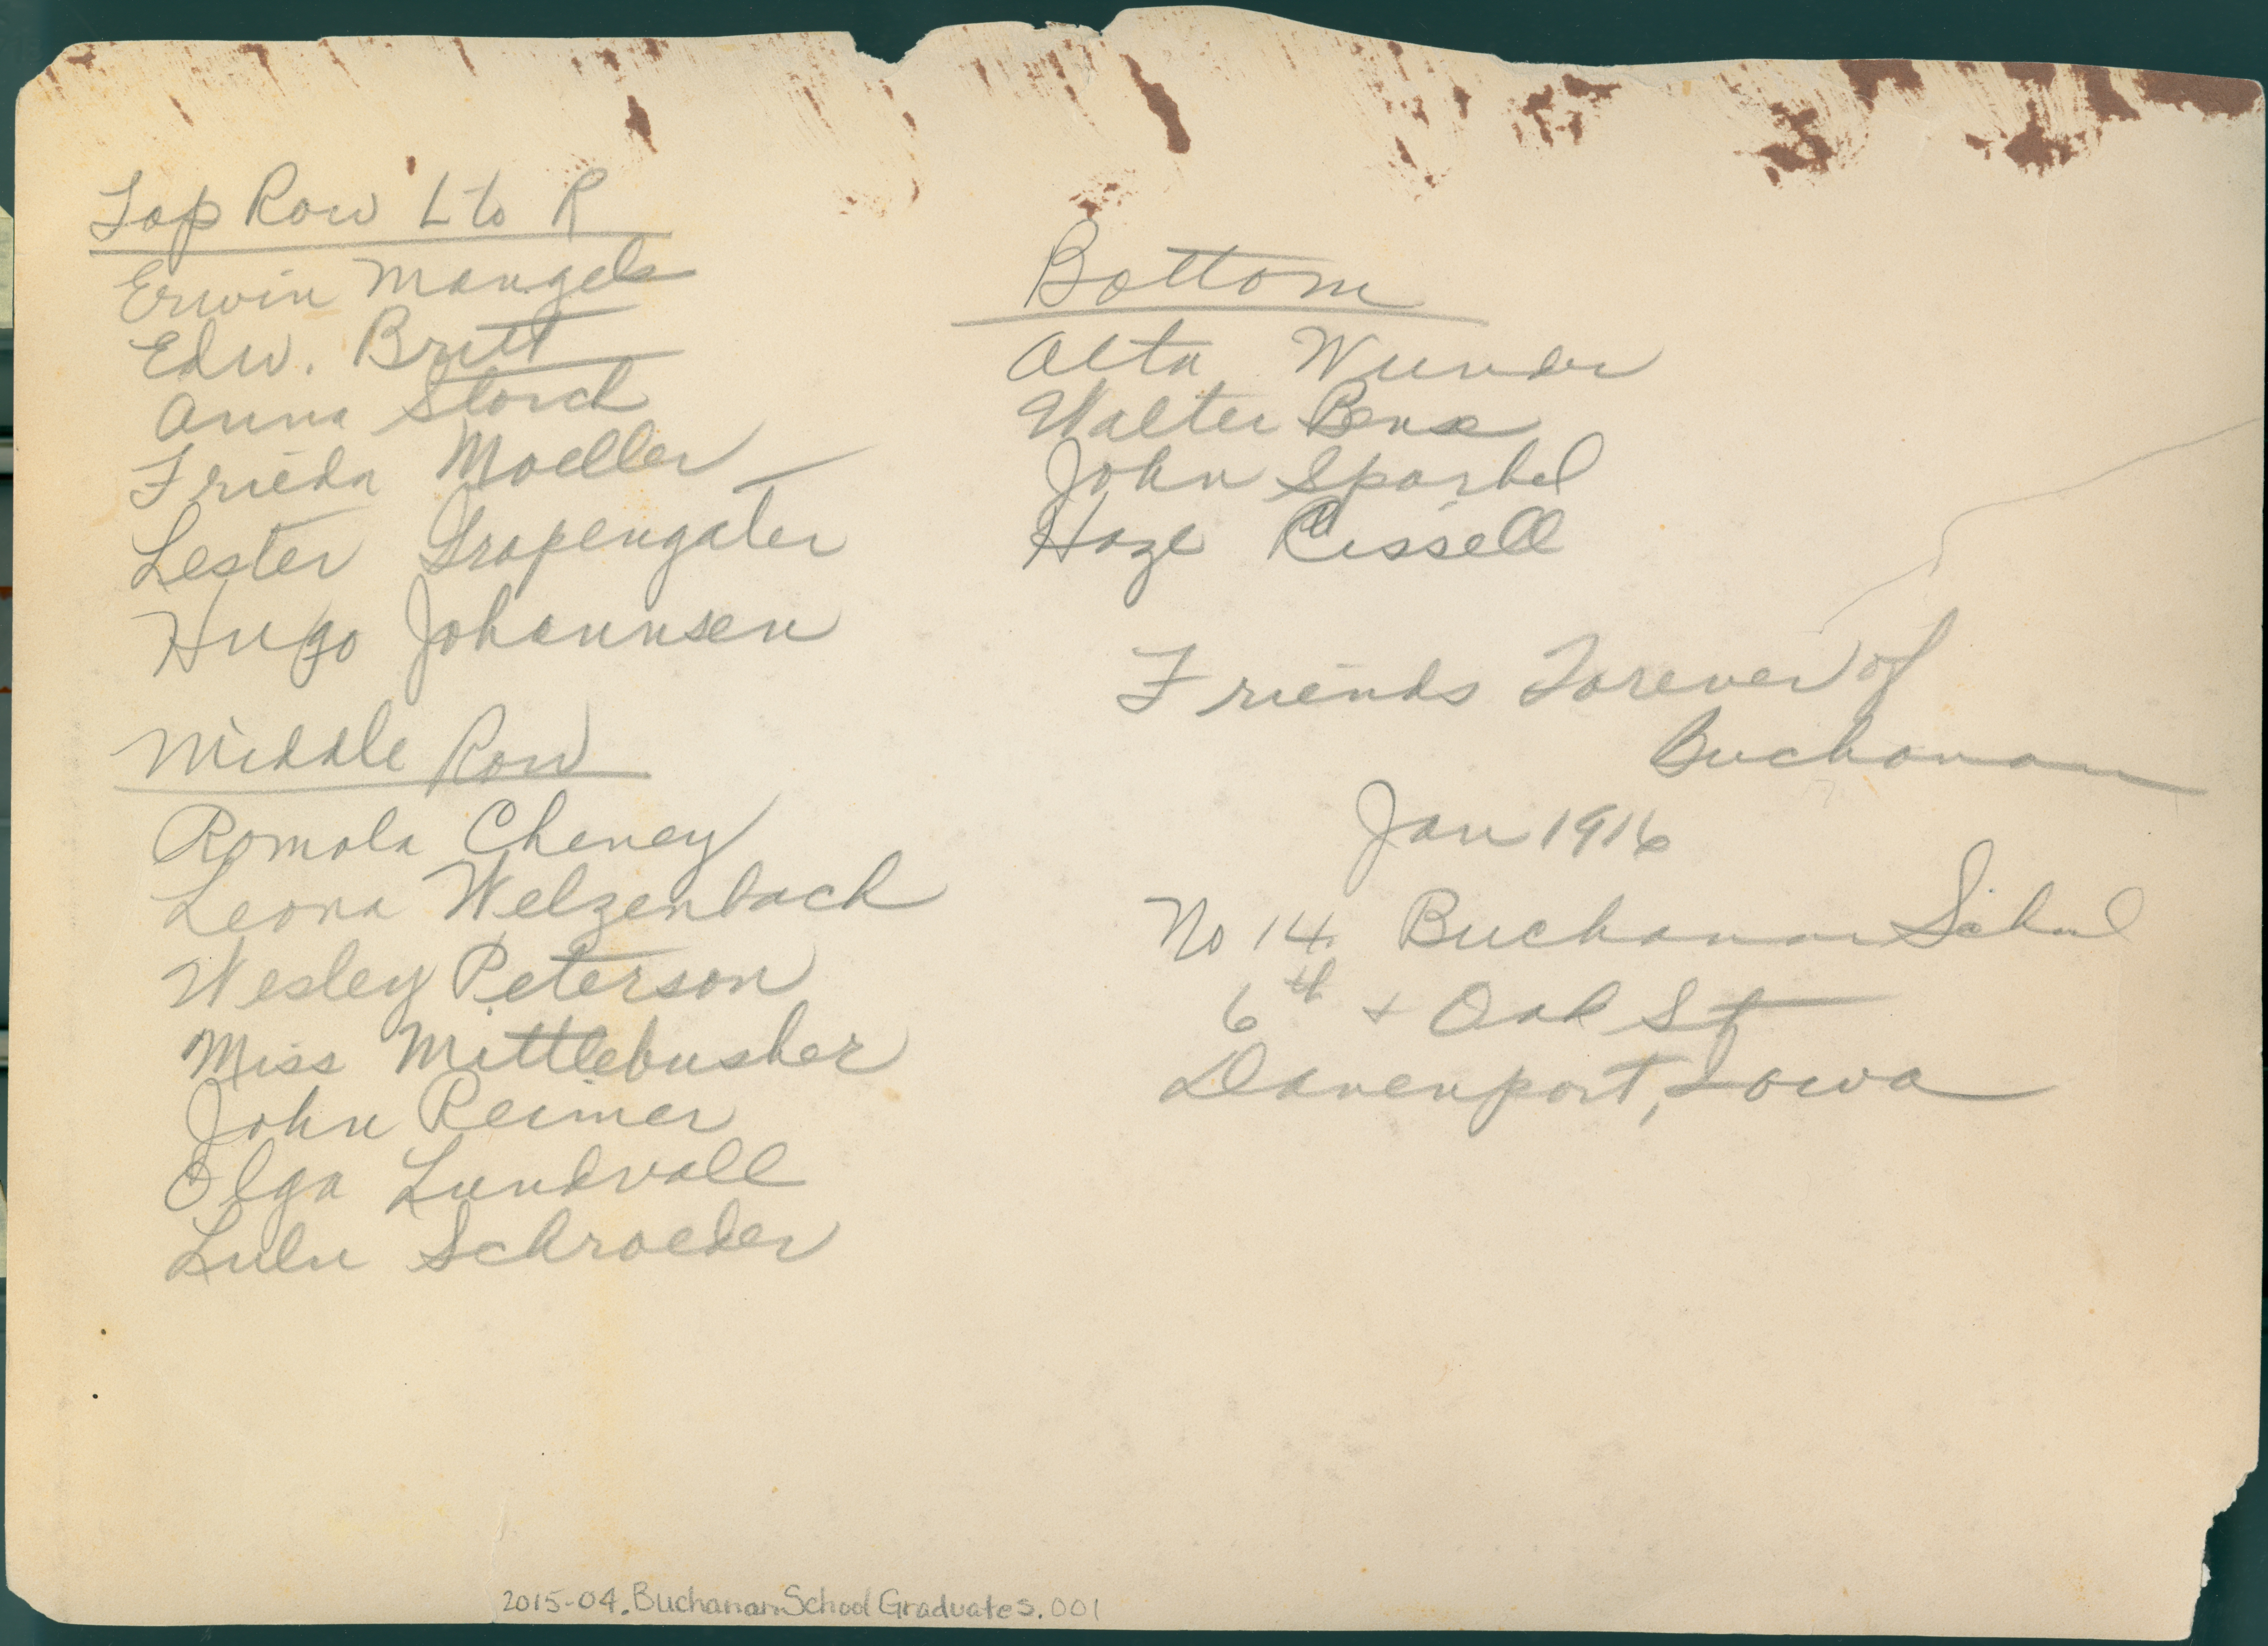 Top Row L to R
Erwin Mangels
Edw. Britt
Anna Storch
Frieda Moeller
Lester Grapengater
Hugo Johannsen
Middle Row
Romola Cheney
Leona Welzenbach
Wesley Peterson
Miss Mittlebusher
John Reimer
Olga Lundvall
Lulu Schroeder
Bottom
Alta Wunder
Walter
John
Haze Rissell
Friends Forever of
Buchanan
Jan 1916
No 14 Buchanan School
6th + Oak St
Davenport, Iowa
2015-04.BuchananSchoolGraduates.001